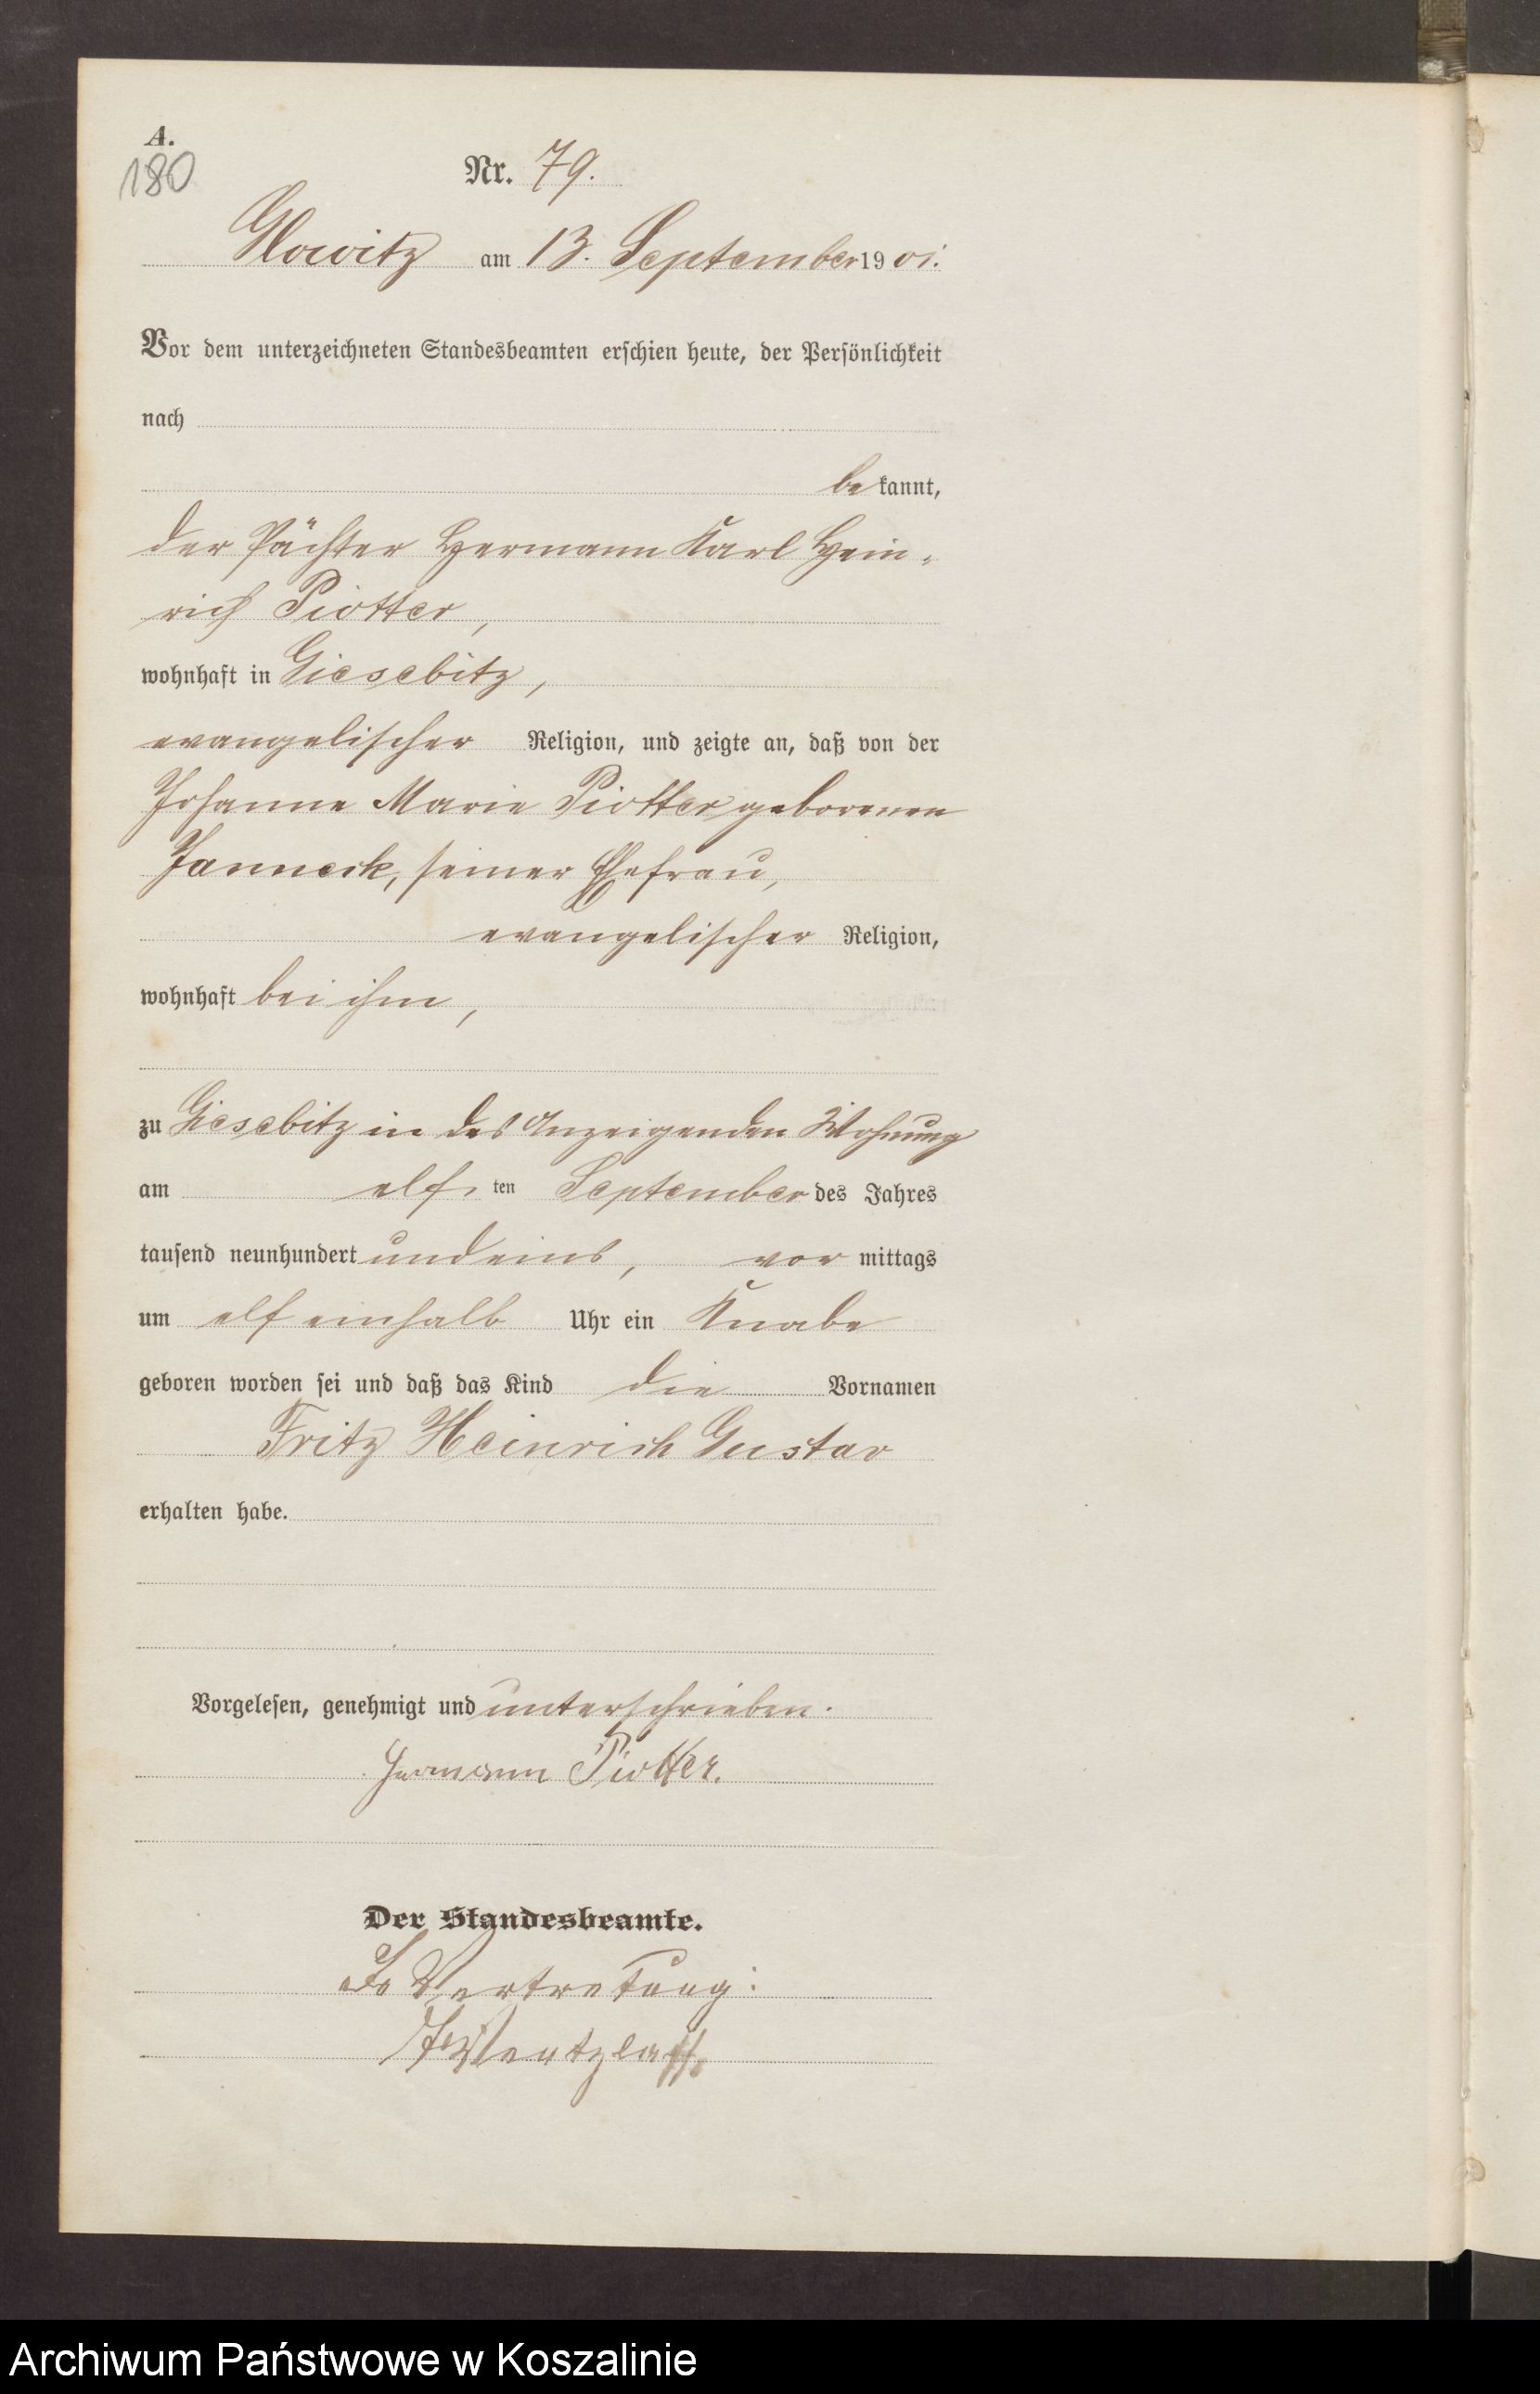 A.
180
Nr. 79.
Glowitz am 13. September 1901.
Vor dem unterzeichneten Standesbeamten erschien heute, der Persönlichkeit
nach
bekannt,
der Pächter Hermann Karl Hein-
rich Piotter,
wohnhaft in Giesebitz,
evangelischer Religion, und zeigte an, daß von der
Johanne Marie Piotter geborenen
Janneck, seiner Ehefrau,
evangelischer Religion,
wohnhaft bei ihm,
zu Giesebitz in des Anzeigenden Wohnung
am elften September des Jahres
tausend neunhundert und eins, vormittags
um elf einhalb Uhr ein Knabe
geboren worden sei und daß das Kind die Vornamen
Fritz Heinrich Gustav
erhalten habe.
Vorgelesen, genehmigt und unterschrieben.
Hermann Piotter.
Der Standesbeamte.
In Vertretung:
Wentzlaff.
Archiwum Państwowe w Koszalinie